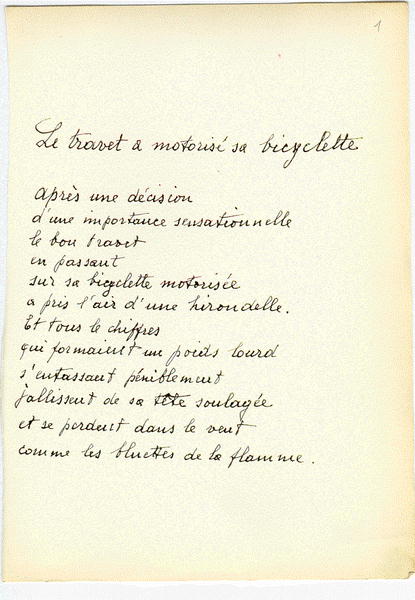 1
Le travet a motorisé sa bicyclette
Après une décision
d'une importance sensationnelle
le bon travet
en passant
sur sa bicyclette motorisée
a pris l'air d'une hirondelle.
Et tous le chiffres
qui formaient un poids lourd
s'entassant péniblement
jallissent de sa tête soulagée
et se perdent dans le vent
comme les bluettes de la flamme.